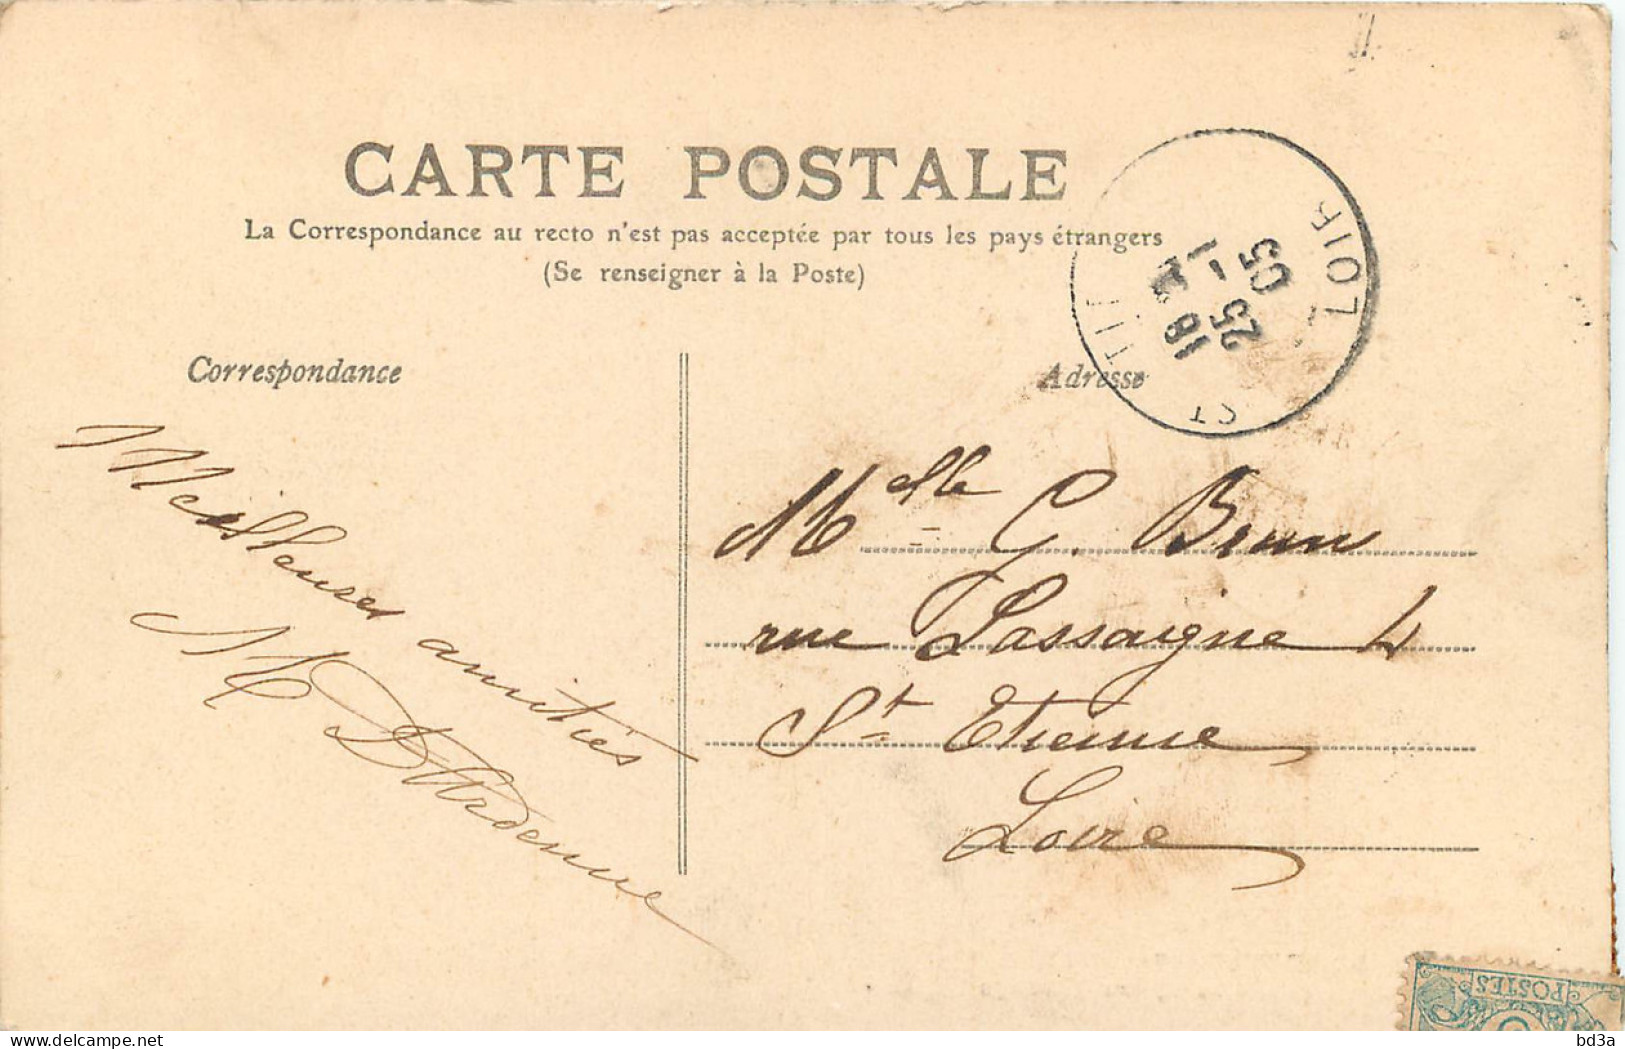 CARTE POSTALE
La Correspondance au recto n'est pas acceptée par tous les pays étrangers
(Se renseigner à la Poste)
Correspondance
Adresse
Meilleures amitiés
M D'Ardenne
Melle G. Brun
rue Lassaigne 4
St Etienne
Loire
LOIR
25 - 1
05
POSTES
delcampe.net
bd3a